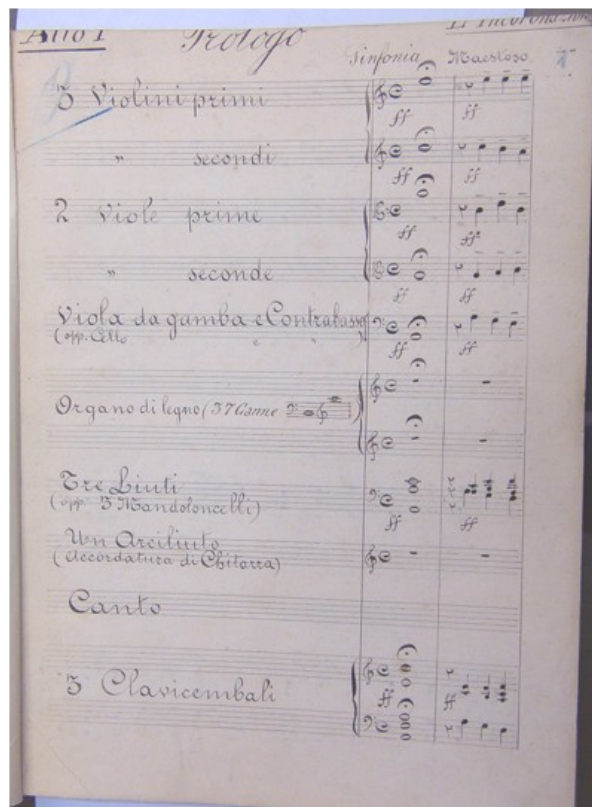 Atto I Prologo
Sinfonia Maestoso 1
3 Violini primi
ff ff
„ secondi
ff ff
2 Viole prime
ff ff
„ seconde
ff ff
Viola da gamba e Contrabasso
(opp. Cello " ")
ff ff
Organo di legno (37 Canne
Tre Liuti
(opp. 3 Mandoloncelli)
ff ff
Un Arciliuto
(accordatura di Chitarra)
Canto
3 Clavicembali
ff ff